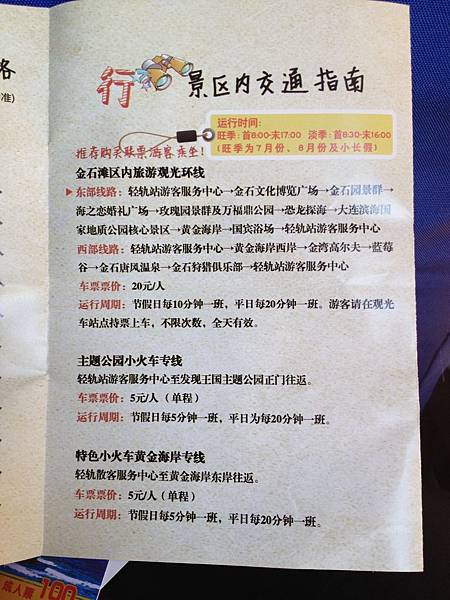 各
准)
行 景区内交通指南
运行时间:
旺季:首8:00-末17:00 淡季:首8:30-末16:00
(旺季为7月份、8月份及小长假)
推荐购买联票游客乘坐!
金石滩区内旅游观光环线
东部线路:轻轨站游客服务中心→金石文化博览广场→金石园景群→
海之恋婚礼广场→玫瑰园景群及万福鼎公园→恐龙探海→大连滨海国
家地质公园核心景区→黄金海岸→国宾浴场→轻轨站游客服务中心
西部线路:轻轨站游客服务中心→黄金海岸西岸→金湾高尔夫→蓝莓
谷→金石唐风温泉→金石狩猎俱乐部→轻轨站游客服务中心
车票票价:20元/人
运行周期:节假日每10分钟一班,平日每20分钟一班。游客请在观光
车站点持票上车,不限次数,全天有效。
主题公园小火车专线
轻轨站游客服务中心至发现王国主题公园正门往返。
车票票价:5元/人(单程)
运行周期:节假日每5分钟一班,平日为每20分钟一班。
特色小火车黄金海岸专线
轻轨散客服务中心至黄金海岸东岸往返。
车票票价:5元/人(单程)
运行周期:节假日每5分钟一班,平日每20分钟一班。
成人票 100